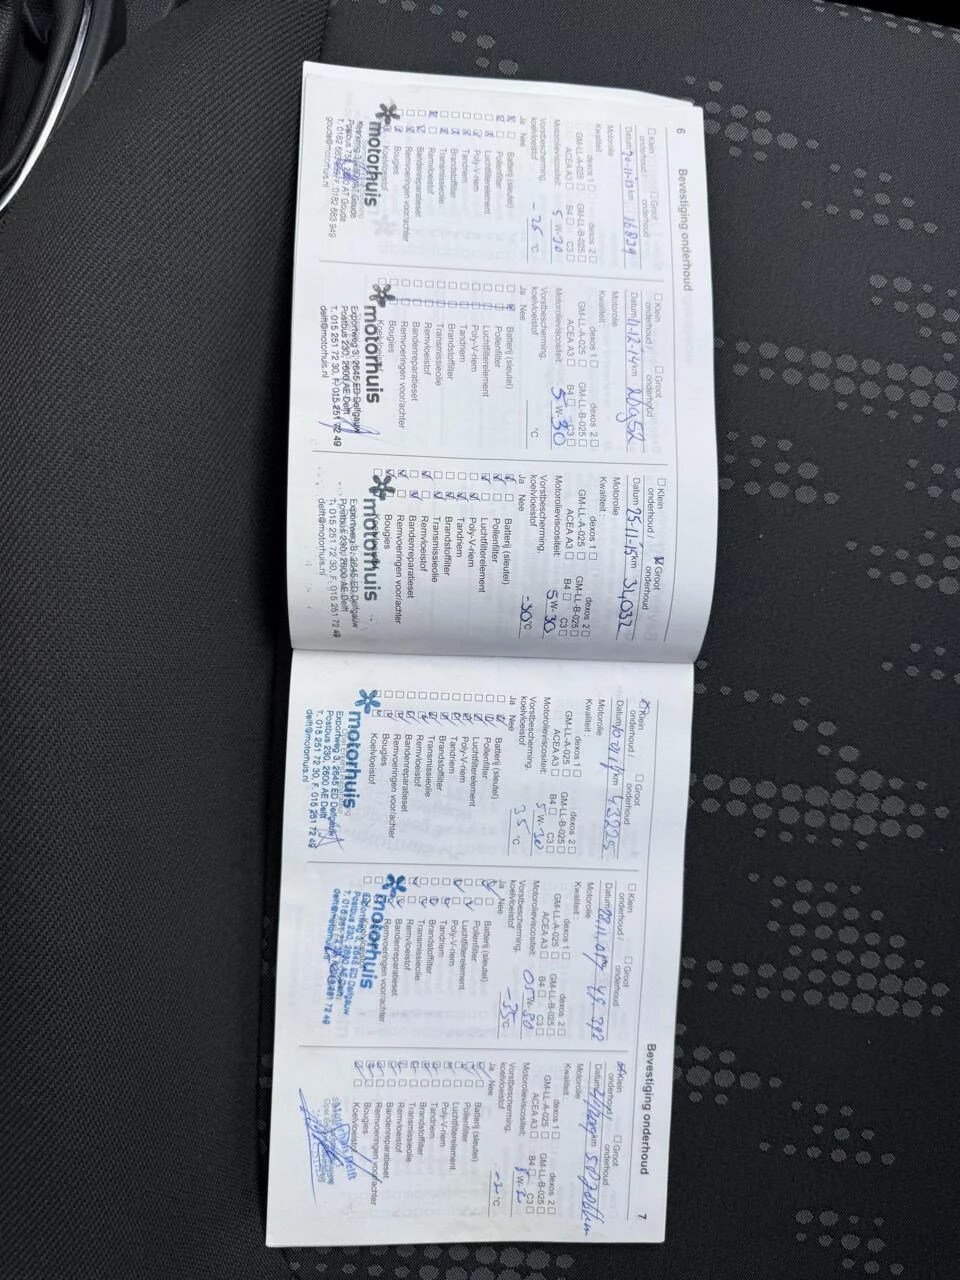 6
Bevestiging onderhoud
☐ Klein onderhoud / ☐ Groot onderhoud
Datum 20-11-13 km 16829
Motorolie
Kwaliteit :
dexos 1 ☐ dexos 2 ☐
GM-LL-A-025 ☐ GM-LL-B-025 ☐
ACEA A3 ☐ B4 ☐ C3 ☐
Motorolieviscositeit: 5 W- 30
Vorstbescherming,
koelvloeistof - 26 °C
Ja Nee
Batterij (sleutel)
Pollenfilter
Luchtfilterelement
Poly-V-riem
Tandriem
Brandstoffilter
Transmissieolie
Remvloeistof
Bandenreparatieset
Remvoeringen voor/achter
Bougies
Koelvloeistof
motorhuis
goude@motorhuis.nl
☐ Klein onderhoud / ☐ Groot onderhoud
Datum 11-12-14 km
Motorolie
Kwaliteit :
dexos 1 ☐ dexos 2 ☐
GM-LL-A-025 ☐ GM-LL-B-025 ☐
ACEA A3 ☐ B4 ☐ C3 ☐
Motorolieviscositeit: 5 W- 30
Vorstbescherming,
koelvloeistof °C
Ja Nee
Batterij (sleutel)
Pollenfilter
Luchtfilterelement
Poly-V-riem
Tandriem
Brandstoffilter
Transmissieolie
Remvloeistof
Bandenreparatieset
Remvoeringen voor/achter
Bougies
motorhuis
Exportweg 3, 2645 ED Delfgauw
Postbus 230, 2600 AE Delft
T. 015 251 72 30, F. 015 251 72 49
delft@motorhuis.nl
☐ Klein onderhoud / ☑ Groot onderhoud
Datum 25-11-15 km 34032
Motorolie
Kwaliteit :
dexos 1 ☐ dexos 2 ☐
GM-LL-A-025 ☐ GM-LL-B-025 ☐
ACEA A3 ☐ B4 ☐ C3 ☐
Motorolieviscositeit: 5 W- 30
Vorstbescherming,
koelvloeistof -30 °C
Ja Nee
Batterij (sleutel)
Pollenfilter
Luchtfilterelement
Poly-V-riem
Tandriem
Brandstoffilter
Transmissieolie
Remvloeistof
Bandenreparatieset
Remvoeringen voor/achter
Bougies
motorhuis
Exportweg 3, 2645 ED Delfgauw
Postbus 230, 2600 AE Delft
T. 015 251 72 30, F. 015 251 72 49
delft@motorhuis.nl
Bevestiging onderhoud
7
Klein onderhoud / ☐ Groot onderhoud
Datum km
Motorolie
Kwaliteit :
dexos 1 ☐ dexos 2 ☐
GM-LL-A-025 ☐ GM-LL-B-025 ☐
ACEA A3 ☐ B4 ☐ C3 ☐
Motorolieviscositeit: 5 W- 30
Vorstbescherming,
koelvloeistof 35 °C
Ja Nee
Batterij (sleutel)
Pollenfilter
Luchtfilterelement
Poly-V-riem
Tandriem
Brandstoffilter
Transmissieolie
Remvloeistof
Bandenreparatieset
Remvoeringen voor/achter
Bougies
Koelvloeistof
motorhuis
Exportweg 3, 2645 ED Delfgauw
Postbus 230, 2600 AE Delft
T. 015 251 72 30, F. 015 251 72 49
delft@motorhuis.nl
☐ Klein onderhoud / ☐ Groot onderhoud
Datum km
Motorolie
Kwaliteit :
dexos 1 ☐ dexos 2 ☐
GM-LL-A-025 ☐ GM-LL-B-025 ☐
ACEA A3 ☐ B4 ☐ C3 ☐
Motorolieviscositeit: 05 W- 30
Vorstbescherming,
koelvloeistof -35 °C
Ja Nee
Batterij (sleutel)
Pollenfilter
Luchtfilterelement
Poly-V-riem
Tandriem
Brandstoffilter
Transmissieolie
Remvloeistof
Bandenreparatieset
Remvoeringen voor/achter
motorhuis
Klein onderhoud / ☐ Groot onderhoud
Datum km
Motorolie
Kwaliteit :
dexos 1 ☐ dexos 2 ☐
GM-LL-A-025 ☐ GM-LL-B-025 ☐
ACEA A3 ☐ B4 ☐ C3 ☐
Motorolieviscositeit: W-
Vorstbescherming,
koelvloeistof °C
Ja Nee
Batterij (sleutel)
Pollenfilter
Luchtfilterelement
Poly-V-riem
Tandriem
Brandstoffilter
Transmissieolie
Remvloeistof
Bandenreparatieset
Remvoeringen voor/achter
Bougies
Koelvloeistof